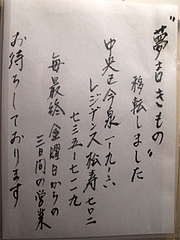 "夢吉きもの"
移転しました
中央区今泉一ノ九ノ六
レジデンス松寿七〇二
七三五ー七二一九
毎最終金曜日からの
三日間の営業
お待ちしております